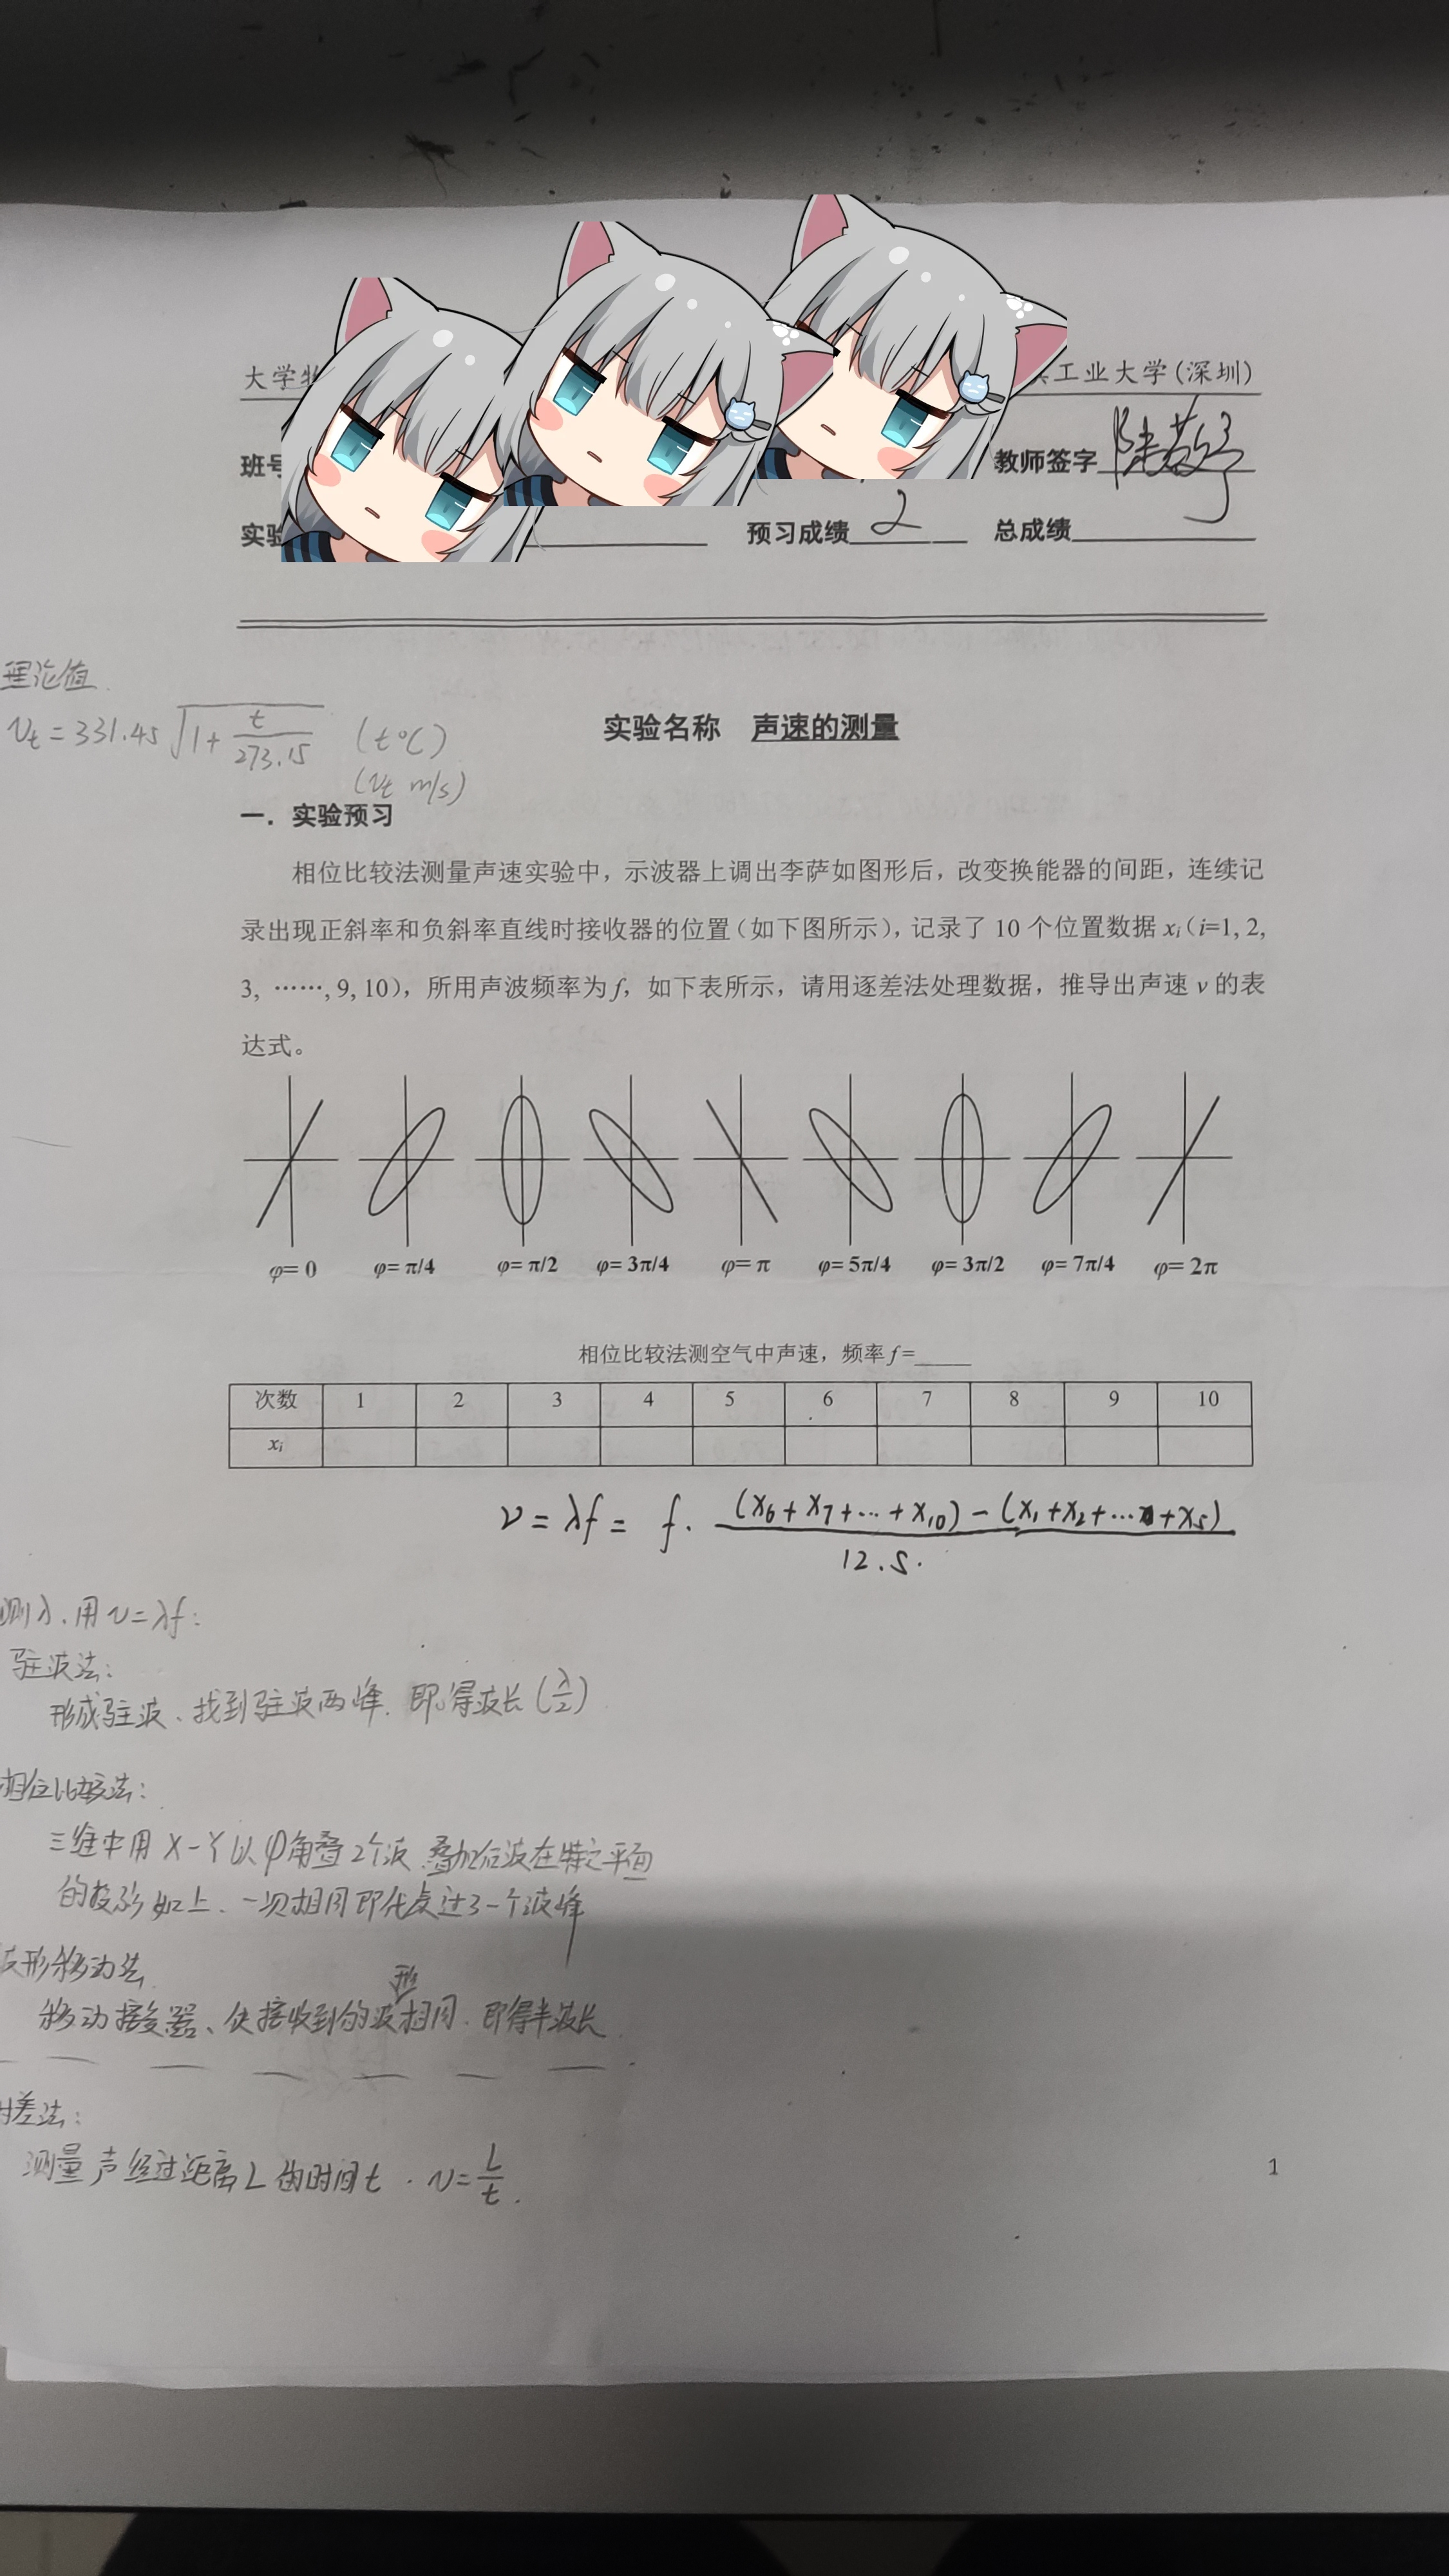 大学
工业大学(深圳)
班号
教师签字
实验
预习成绩 2
总成绩
理论值
v_t = 331.45 √(1 + t/273.15) (t℃)
(v_t m/s)
实验名称 声速的测量
一. 实验预习
相位比较法测量声速实验中，示波器上调出李萨如图形后，改变换能器的间距，连续记
录出现正斜率和负斜率直线时接收器的位置（如下图所示），记录了 10 个位置数据 xᵢ（i=1, 2,
3, ……, 9, 10），所用声波频率为 f，如下表所示，请用逐差法处理数据，推导出声速 v 的表
达式。
φ= 0 φ= π/4 φ= π/2 φ= 3π/4 φ= π φ= 5π/4 φ= 3π/2 φ= 7π/4 φ= 2π
相位比较法测空气中声速，频率 f=_____
次数 1 2 3 4 5 6 7 8 9 10
xᵢ
v = λf = f· ((x₆+x₇+…+x₁₀) - (x₁+x₂+…+x₅)) / 12.5.
测λ. 用 v=λf:
驻波法:
形成驻波、找到驻波两峰. 即得波长(λ/2)
相位比较法:
三维中用 X-Y 以φ角叠2个波.叠加后波在特定平面
的投影如上. 一次相同即代表过了一个波峰
波形移动法
移动接受器、使接收到的波形相同. 即得半波长
时差法:
测量声经过距离L的时间t. v=L/t.
1